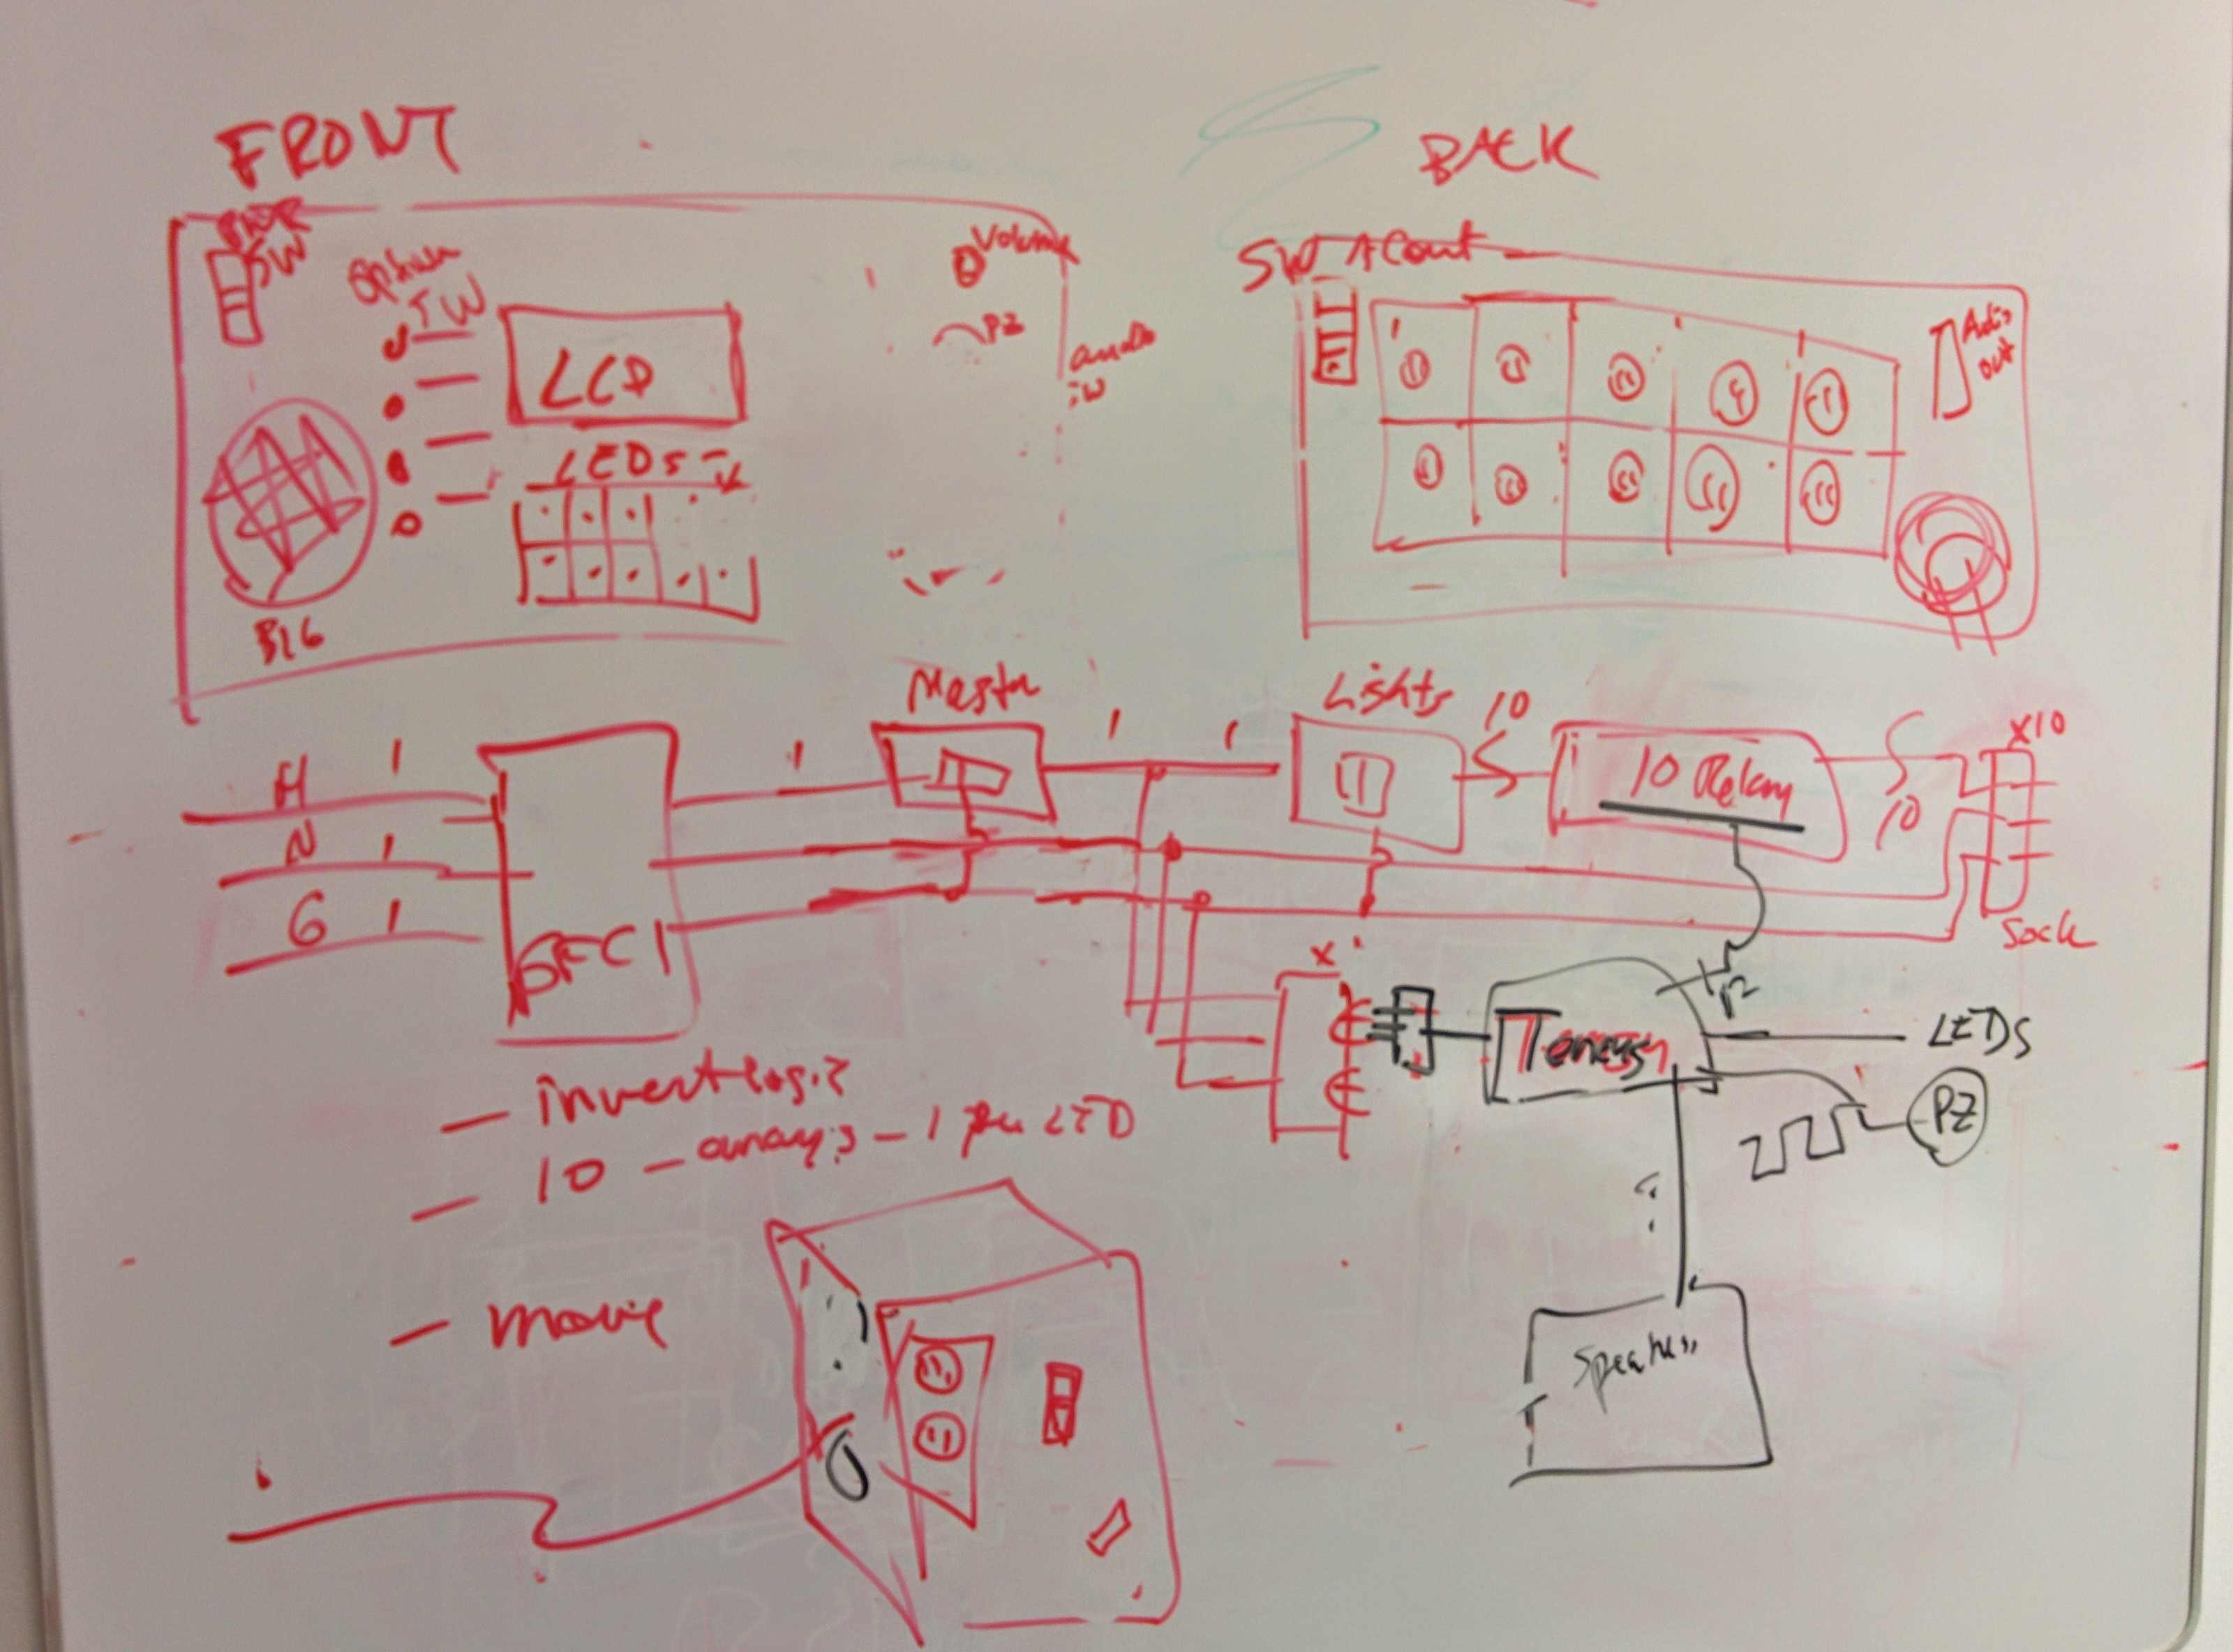 FRONT
BACK
PWR
SW
Option
SW
LCD
LEDs
BIG
Volume
PZ
audio
in
SW ACout
Audio
out
H 1
N 1
G 1
GFCI
1
Master
1 1
Lights
10
10 Relay
10
x10
Sock
x1
Teensy
12
LEDS
PZ
Speakers
- invert logic
- 10 - arrays - 1 per LED
- movie